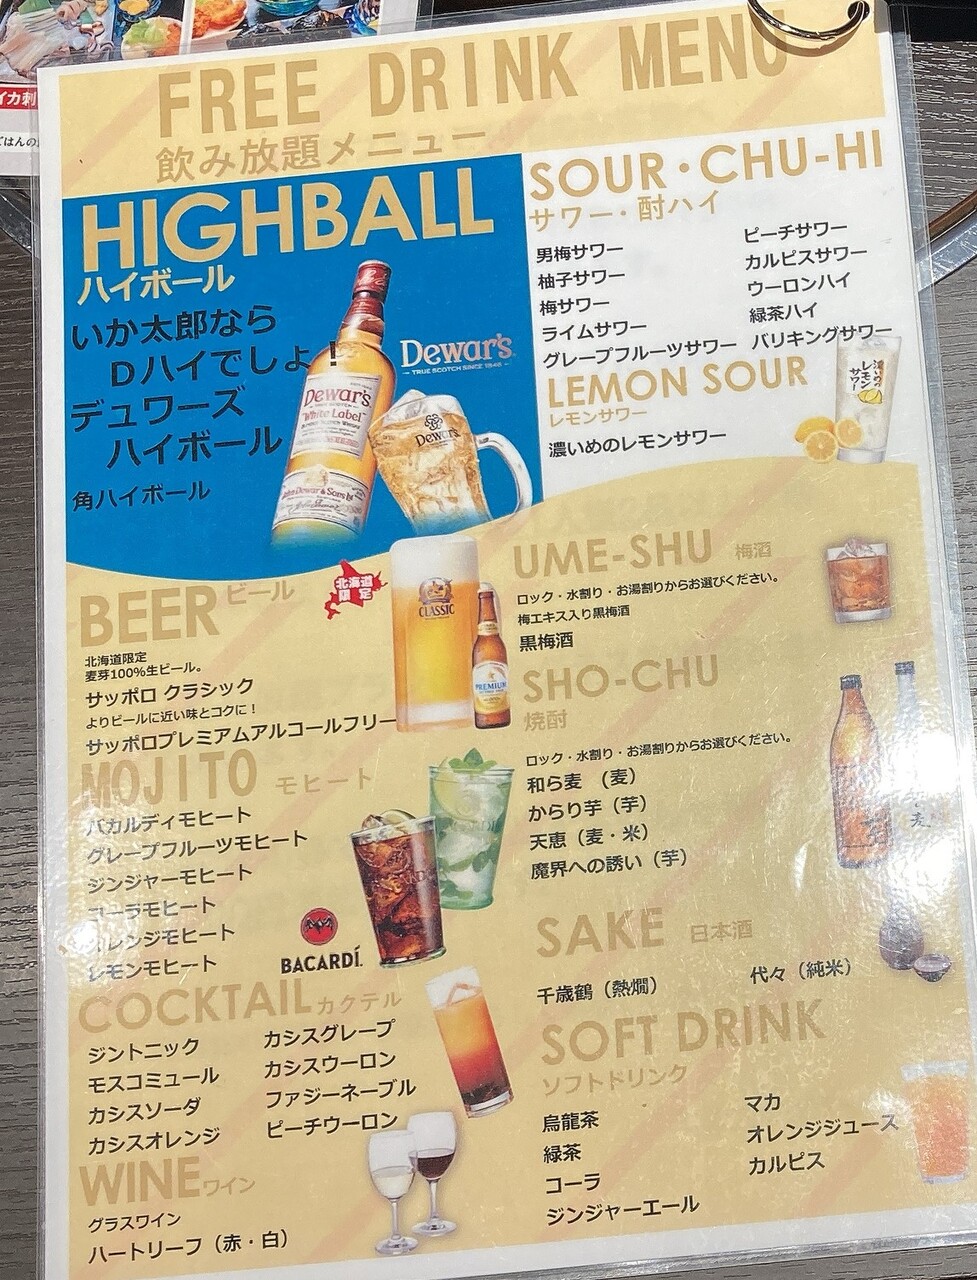 イカ刺
ごはんの
FREE DRINK MENU
飲み放題メニュー
HIGHBALL
ハイボール
いか太郎なら
Dハイでしょ!
デュワーズ
ハイボール
角ハイボール
Dewar's
TRUE SCOTCH SINCE 1846
Dewar's
"White Label"
John Dewar & Sons Ltd
Dewar's
SOUR・CHU-HI
サワー・酎ハイ
男梅サワー
柚子サワー
梅サワー
ライムサワー
グレープフルーツサワー
ピーチサワー
カルピスサワー
ウーロンハイ
緑茶ハイ
バリキングサワー
LEMON SOUR
レモンサワー
濃いめのレモンサワー
濃いめの
レモン
サワー
BEER ビール
北海道
限定
北海道限定
麦芽100%生ビール。
サッポロ クラシック
よりビールに近い味とコクに!
サッポロプレミアムアルコールフリー
CLASSIC
PREMIUM
UME-SHU 梅酒
ロック・水割り・お湯割りからお選びください。
梅エキス入り黒梅酒
黒梅酒
SHO-CHU
焼酎
ロック・水割り・お湯割りからお選びください。
和ら麦 (麦)
からり芋(芋)
天恵(麦・米)
魔界への誘い(芋)
MOJITO モヒート
バカルディモヒート
グレープフルーツモヒート
ジンジャーモヒート
コーラモヒート
オレンジモヒート
レモンモヒート
BACARDÍ.
SAKE 日本酒
千歳鶴(熱燗)
代々(純米)
COCKTAIL カクテル
ジントニック
モスコミュール
カシスソーダ
カシスオレンジ
カシスグレープ
カシスウーロン
ファジーネーブル
ピーチウーロン
SOFT DRINK
ソフトドリンク
烏龍茶
緑茶
コーラ
ジンジャーエール
マカ
オレンジジュース
カルピス
WINE ワイン
グラスワイン
ハートリーフ(赤・白)